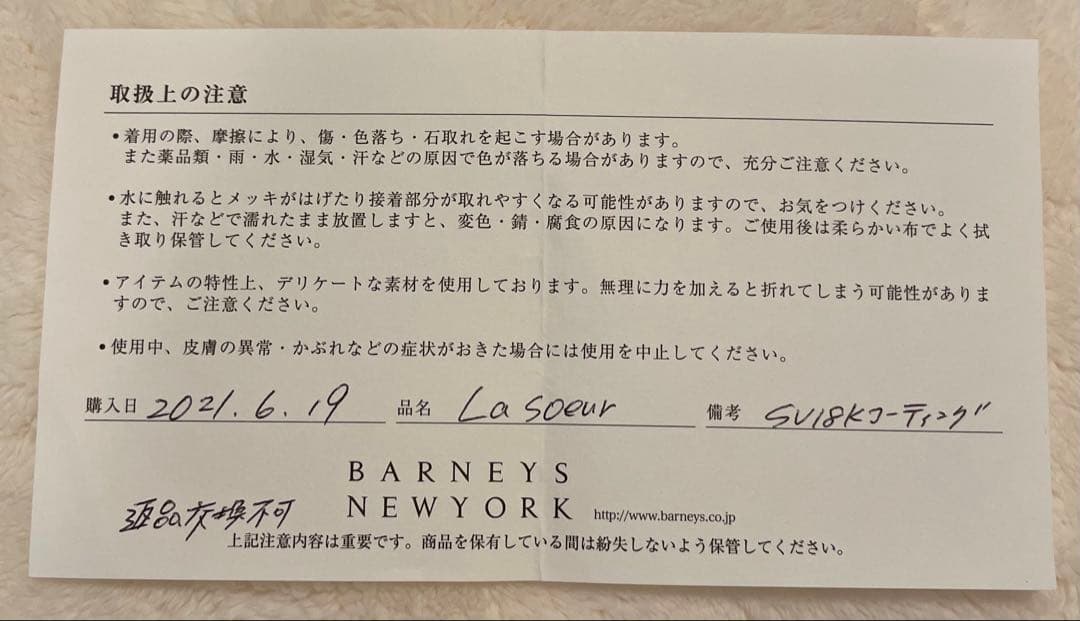 取扱上の注意
•着用の際、摩擦により、傷・色落ち・石取れを起こす場合があります。
また薬品類・雨・水・湿気・汗などの原因で色が落ちる場合がありますので、充分ご注意ください。
•水に触れるとメッキがはげたり接着部分が取れやすくなる可能性がありますので、お気をつけください。
また、汗などで濡れたまま放置しますと、変色・錆・腐食の原因になります。ご使用後は柔らかい布でよく拭
き取り保管してください。
•アイテムの特性上、デリケートな素材を使用しております。無理に力を加えると折れてしまう可能性がありま
すので、ご注意ください。
•使用中、皮膚の異常・かぶれなどの症状がおきた場合には使用を中止してください。
購入日 2021.6.19 品名 La soeur 備考 SV18Kコーティング
BARNEYS
NEWYORK http://www.barneys.co.jp
返品交換不可
上記注意内容は重要です。商品を保有している間は紛失しないよう保管してください。